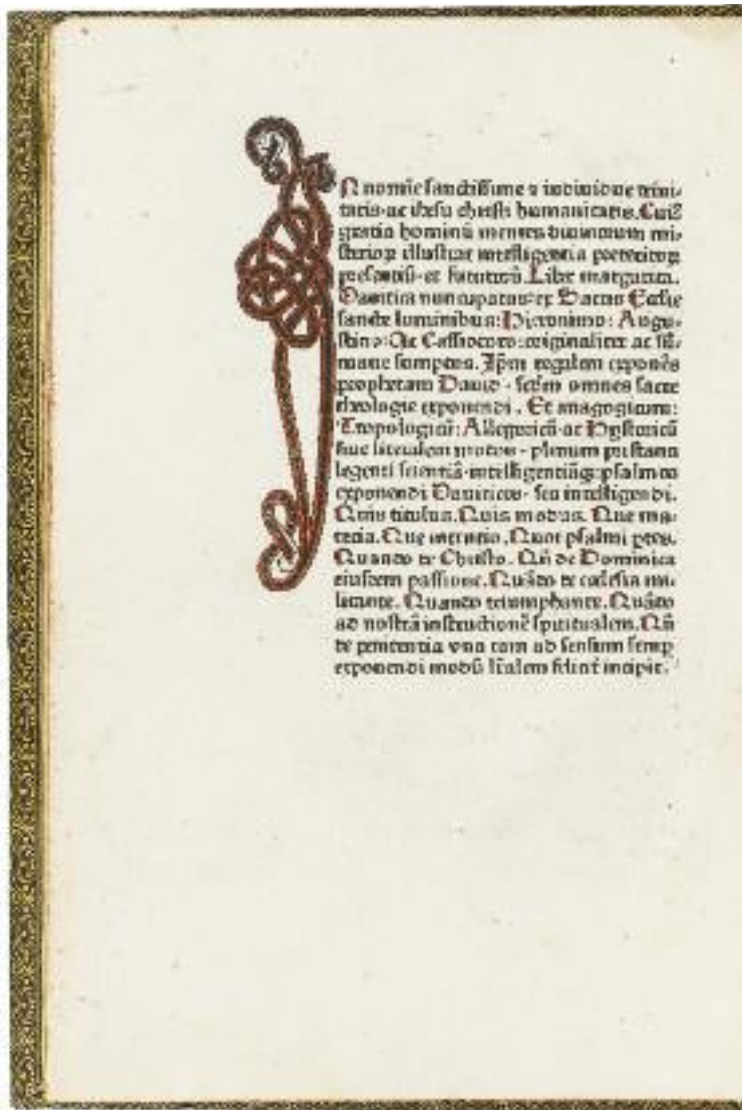 IN nomīe sanctissime ⁊ individue trini-
tatis·ac ihesu christi humanitatis. Cuiꝰ
gratia hominū mentes divinorum mi-
sterioꝝ illustrat intelligentia preteritoꝝ
presentiū·et futurorū. Liber margarita.
Davitica nuncupatus: ex Ecclesie
sancte luminibus: Hieronimo: Augu-
stino: Ac Cassiodoro: originaliter ac
sumptus. Ipm regalem exponēs
prophetam David· scdm omnes sacre
theologie exponendi. Et anagogicum:
Tropologicū: Allegoricū·ac Hystoricū
sive literalem modos· plenum prestans
legenti scientiā·intelligentiāqꝫ psalmos
exponendi Daviticos· seu intelligendi.
Quis titulus. Quis modus. Que ma-
teria. Que intentio. Quot psalmi ptes.
Quando de Christo. Qn̄ de Dominica
eiusdem passione. Quādo de ecclesia mi-
litante. Quando triumphante. Quādo
ad nostrā instructionē spiritualem. Qn̄
de penitentia una cum ad sensum semp
exponendi modū lr̄alem incipit.